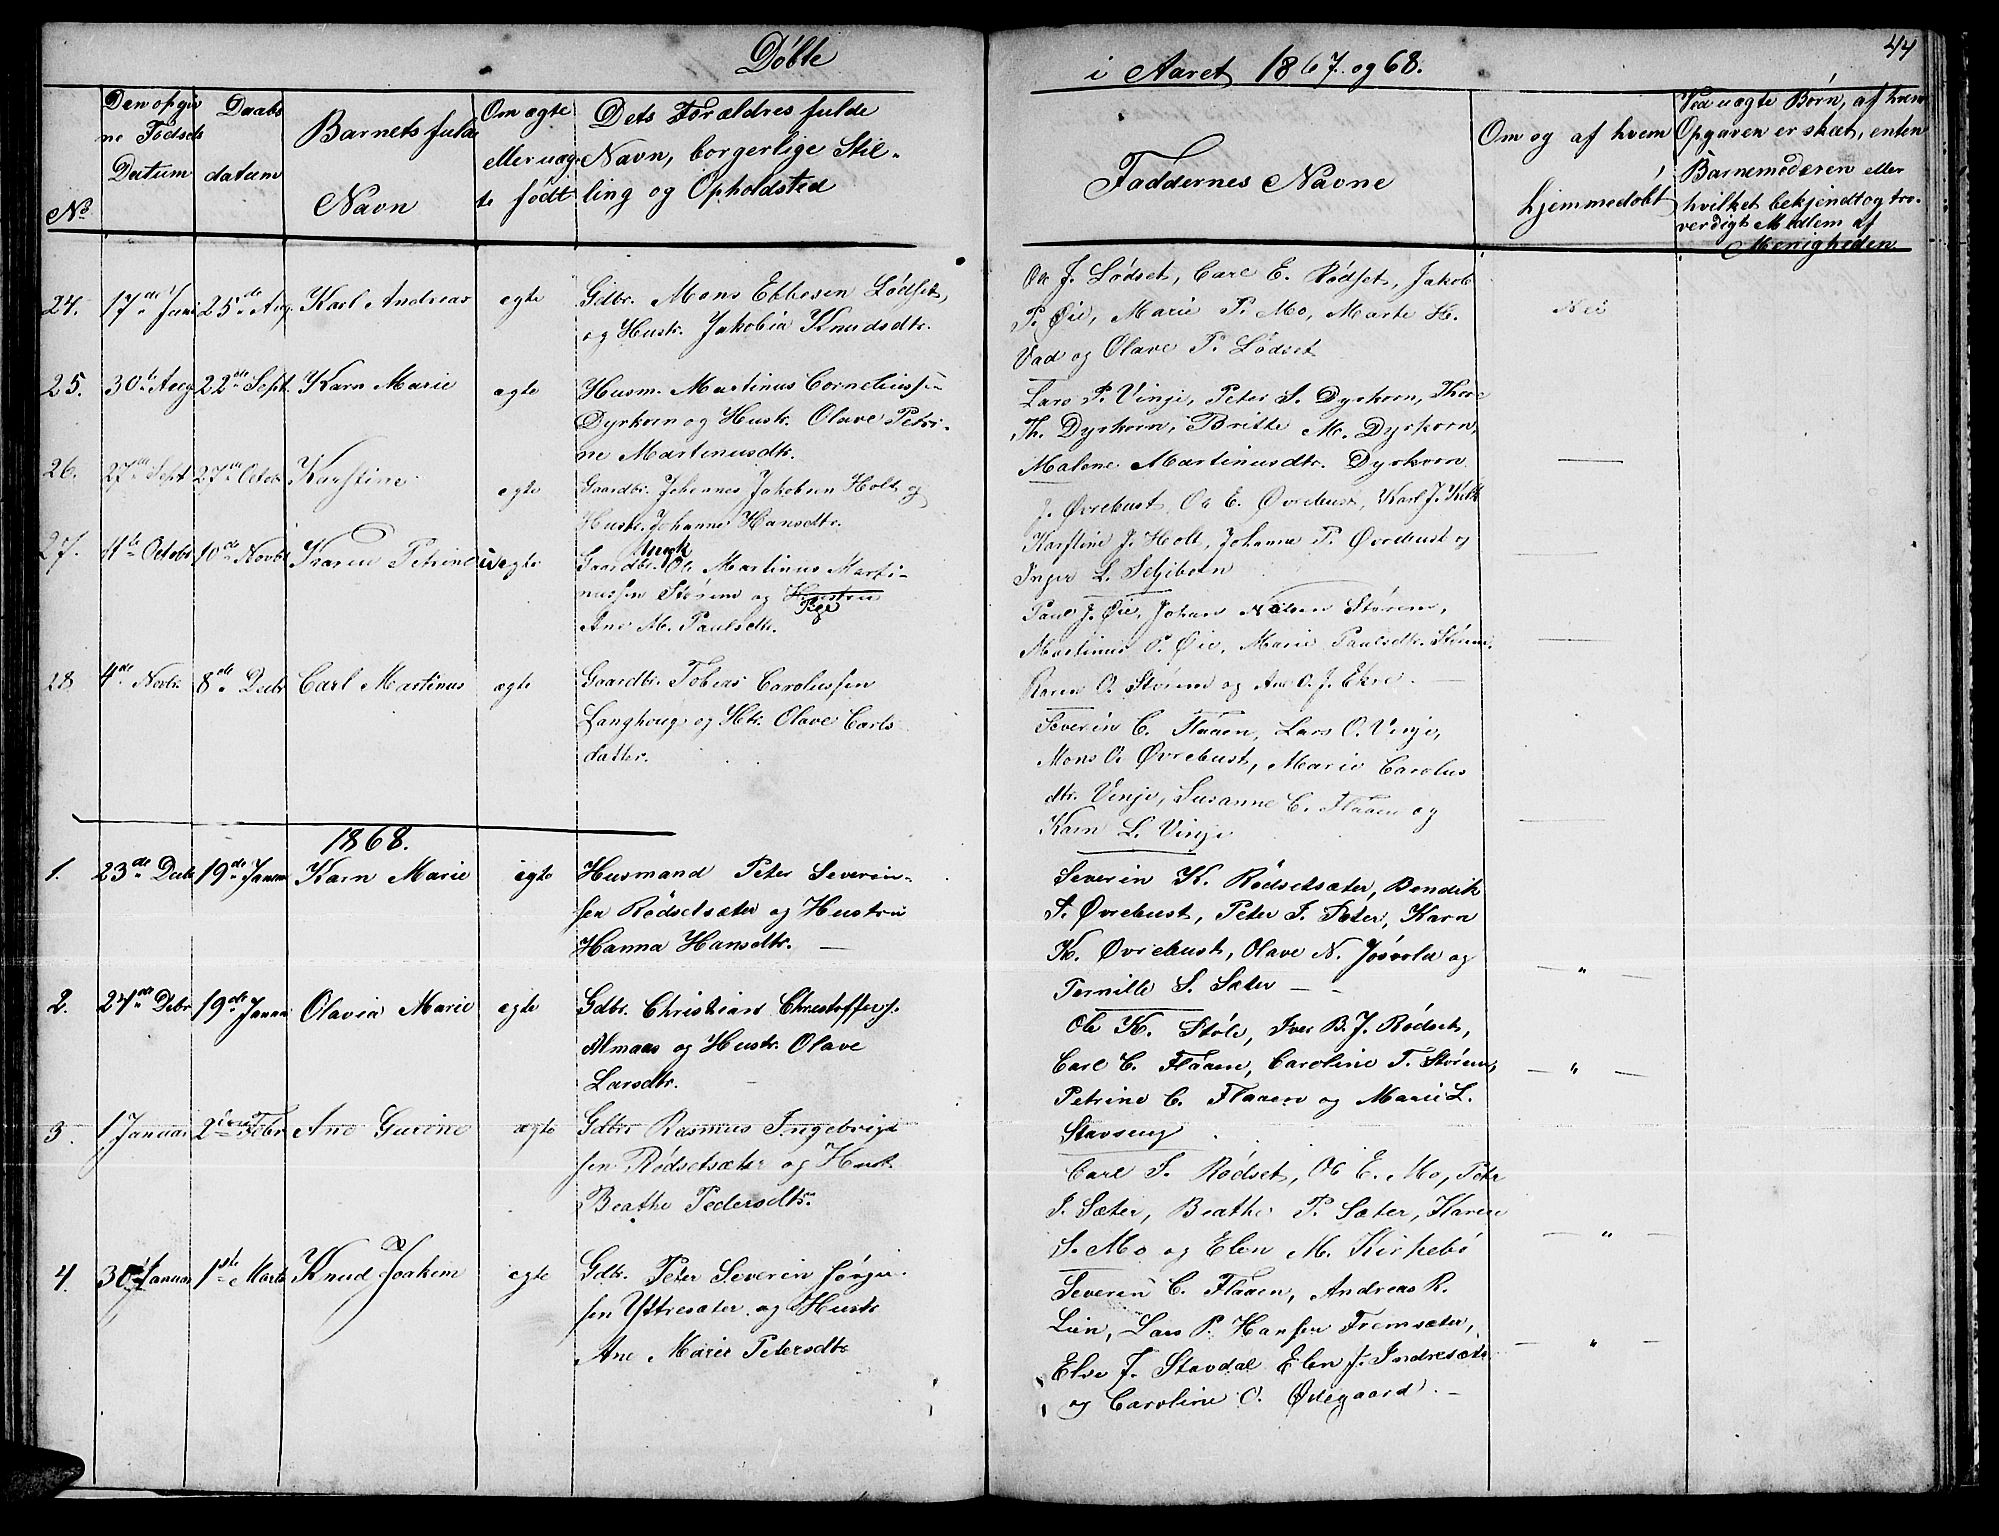 Döbte
i Aaret 1867 og 68.
44
No
Den opgiv
ne Födsels
Datum
Daabs
datum
Barnets fulde
Navn
Om ægte
eller uæg
te födt
Dets Forældres fulde
Navn, borgerlige Stil-
ling og Opholdsted
Faddernes Navne
Om og af hvem
hjemmedöbt
Ved uægte Börn, af hvem
Opgaven er skeet, enten
Barnemoderen eller
hvilket bekjendt og tro-
værdigt Medlem af
Menigheden
24. 17de Juni 25de Aug. Karl Andreas ægte
Gdbr. Mons Ebbesen Lödset,
og Hustr. Jakobia Knudsdtr.
Ole J. Lödset, Carl E. Rödset, Jakob
P. Öie, Marie P. Mo, Marte H.
Vad og Olave P. Lödset
Nei
25. 30te Aug 22de Sept. Karn Marie ægte
Husm. Martinus Corneliussen
Dyrkorn og Hustr. Olave Petri-
ne Martinusdtr.
Lars P. Vinje, Peter S. Dyrkorn, Thore
Th. Dyrkorn, Britte M. Dyrkorn,
Malene Martinusdtr. Dyrkorn
26. 27de Sept 27de Octob Karstine ægte
Gaardbr. Johannes Jakobsen Holt og
Hustr. Johanne Hansdtr.
J. Övrebust, Ole E. Övrebust, Karl J. Holt
Karstine J. Holt, Johanne P. Övrebust og
Inger L. Seljebotn
27. 11te Octobr 10de Novbr Karen Petrine uægte
Gaardbr. Ungk. Ole Martinus Marti-
nussen Störem og Hustru Pge
Ane M. Paulsdtr.
Paul J. Öie, Johan Nilsen Störem,
Martinus P. Öie, Marie Paulsdtr. Störem
Karen O. Störem og Ane O. J. Ekre
28 4de Novbr. 8de Decbr Carl Martinus ægte
Gaardbr. Tobias Carolussen
Langhoug og Htr. Olave Carls
datter.
Severin C. Flaaen, Lars O. Vinje,
Mons O. Övrebust, Marie Carolus
dtr. Vinje, Susanne C. Flaaen og
Karn L. Vinje
1868.
1. 23de Decbr 19de Januar Karn Marie ægte
Husmand Peter Severin-
sen Rödsetsæter og Hustru
Hanna Hansdtr.
Severin K. Rödsetsæter, Bendik
S. Övrebust, Peter I. Sæter, Karn
K. Övrebust, Olave N. Jösvold og
Pernille S. Sæter
2. 24de Debr 19de Januar Olavia Marie ægte
Gdbr. Christian Christoffers.
Almaas og Hustr. Olave
Larsdtr.
Ole K. Stöle, Iver B. J. Rödset,
Carl C. Flaaen, Caroline T. Störem,
Petrine C. Flaaen og Marie L.
Stavseng
3. 1 Januar 2den Febr. Ane Gurine ægte
Gdbr Rasmus Ingebrigt
sen Rödsetsæter og Hustr.
Beathe Pedersdtr.
Carl S. Rödset, Ole E. Mo, Peter
I. Sæter, Beathe P. Sæter, Karen
S. Mo og Elen M. Kirkebö
4. 30 Januar 1ste Marts Knud Joakim ægte
Gdbr. Peter Severin Jörgen-
sen Yttresæter og Hustr
Ane Marie Petersdtr
Severin C. Flaaen, Andreas R.
Lien, Lars P. Hansen Fremsæter,
Elve J. Stavdal Elen J. Indresæter
og Caroline O. Ödegaard.